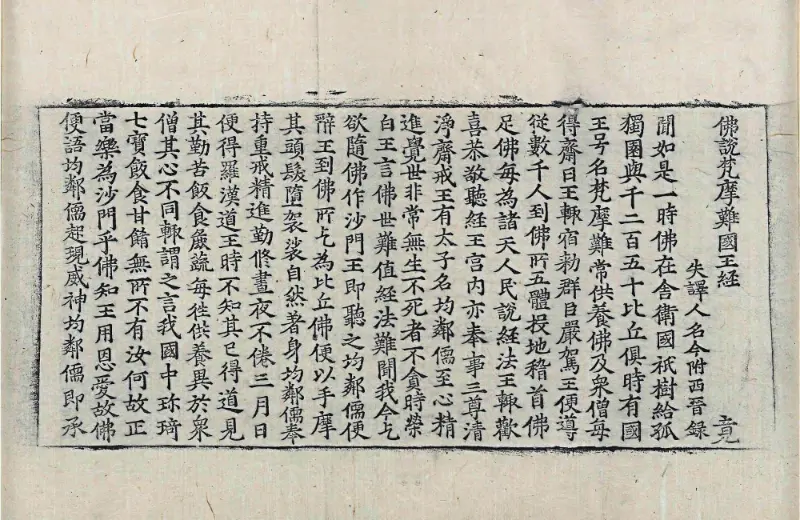 佛說梵摩難國王經 竟
失譯人名今附西晉錄
聞如是一時佛在舍衛國祇樹給孤
獨園與千二百五十比丘俱時有國
王号名梵摩難常供養佛及衆僧每
得齋日王輙宿勑群臣嚴駕王便導
從數千人到佛所五體投地稽首佛
足佛每為諸天人民說經法王輙歡
喜恭敬聽經王宫内亦奉事三尊清
淨齋戒王有太子名均鄰儒至心精
進覺世非常無生不死者不貪時榮
白王言佛世難值經法難聞我今乞
欲隨佛作沙門王即聽之均鄰儒便
辭王到佛所乞為比丘佛便以手摩
其頭髮墮袈裟自然著身均鄰儒奉
持重戒精進勤修晝夜不倦三月日
便得羅漢道王時不知其已得道見
其勤苦飯食麁蔬每徃供養異於衆
僧其心不同輙謂之言我國中珎琦
七寶飯食甘餚無所不有汝何故正
當樂為沙門乎佛知王用恩愛故佛
便語均鄰儒起現威神均鄰儒即承